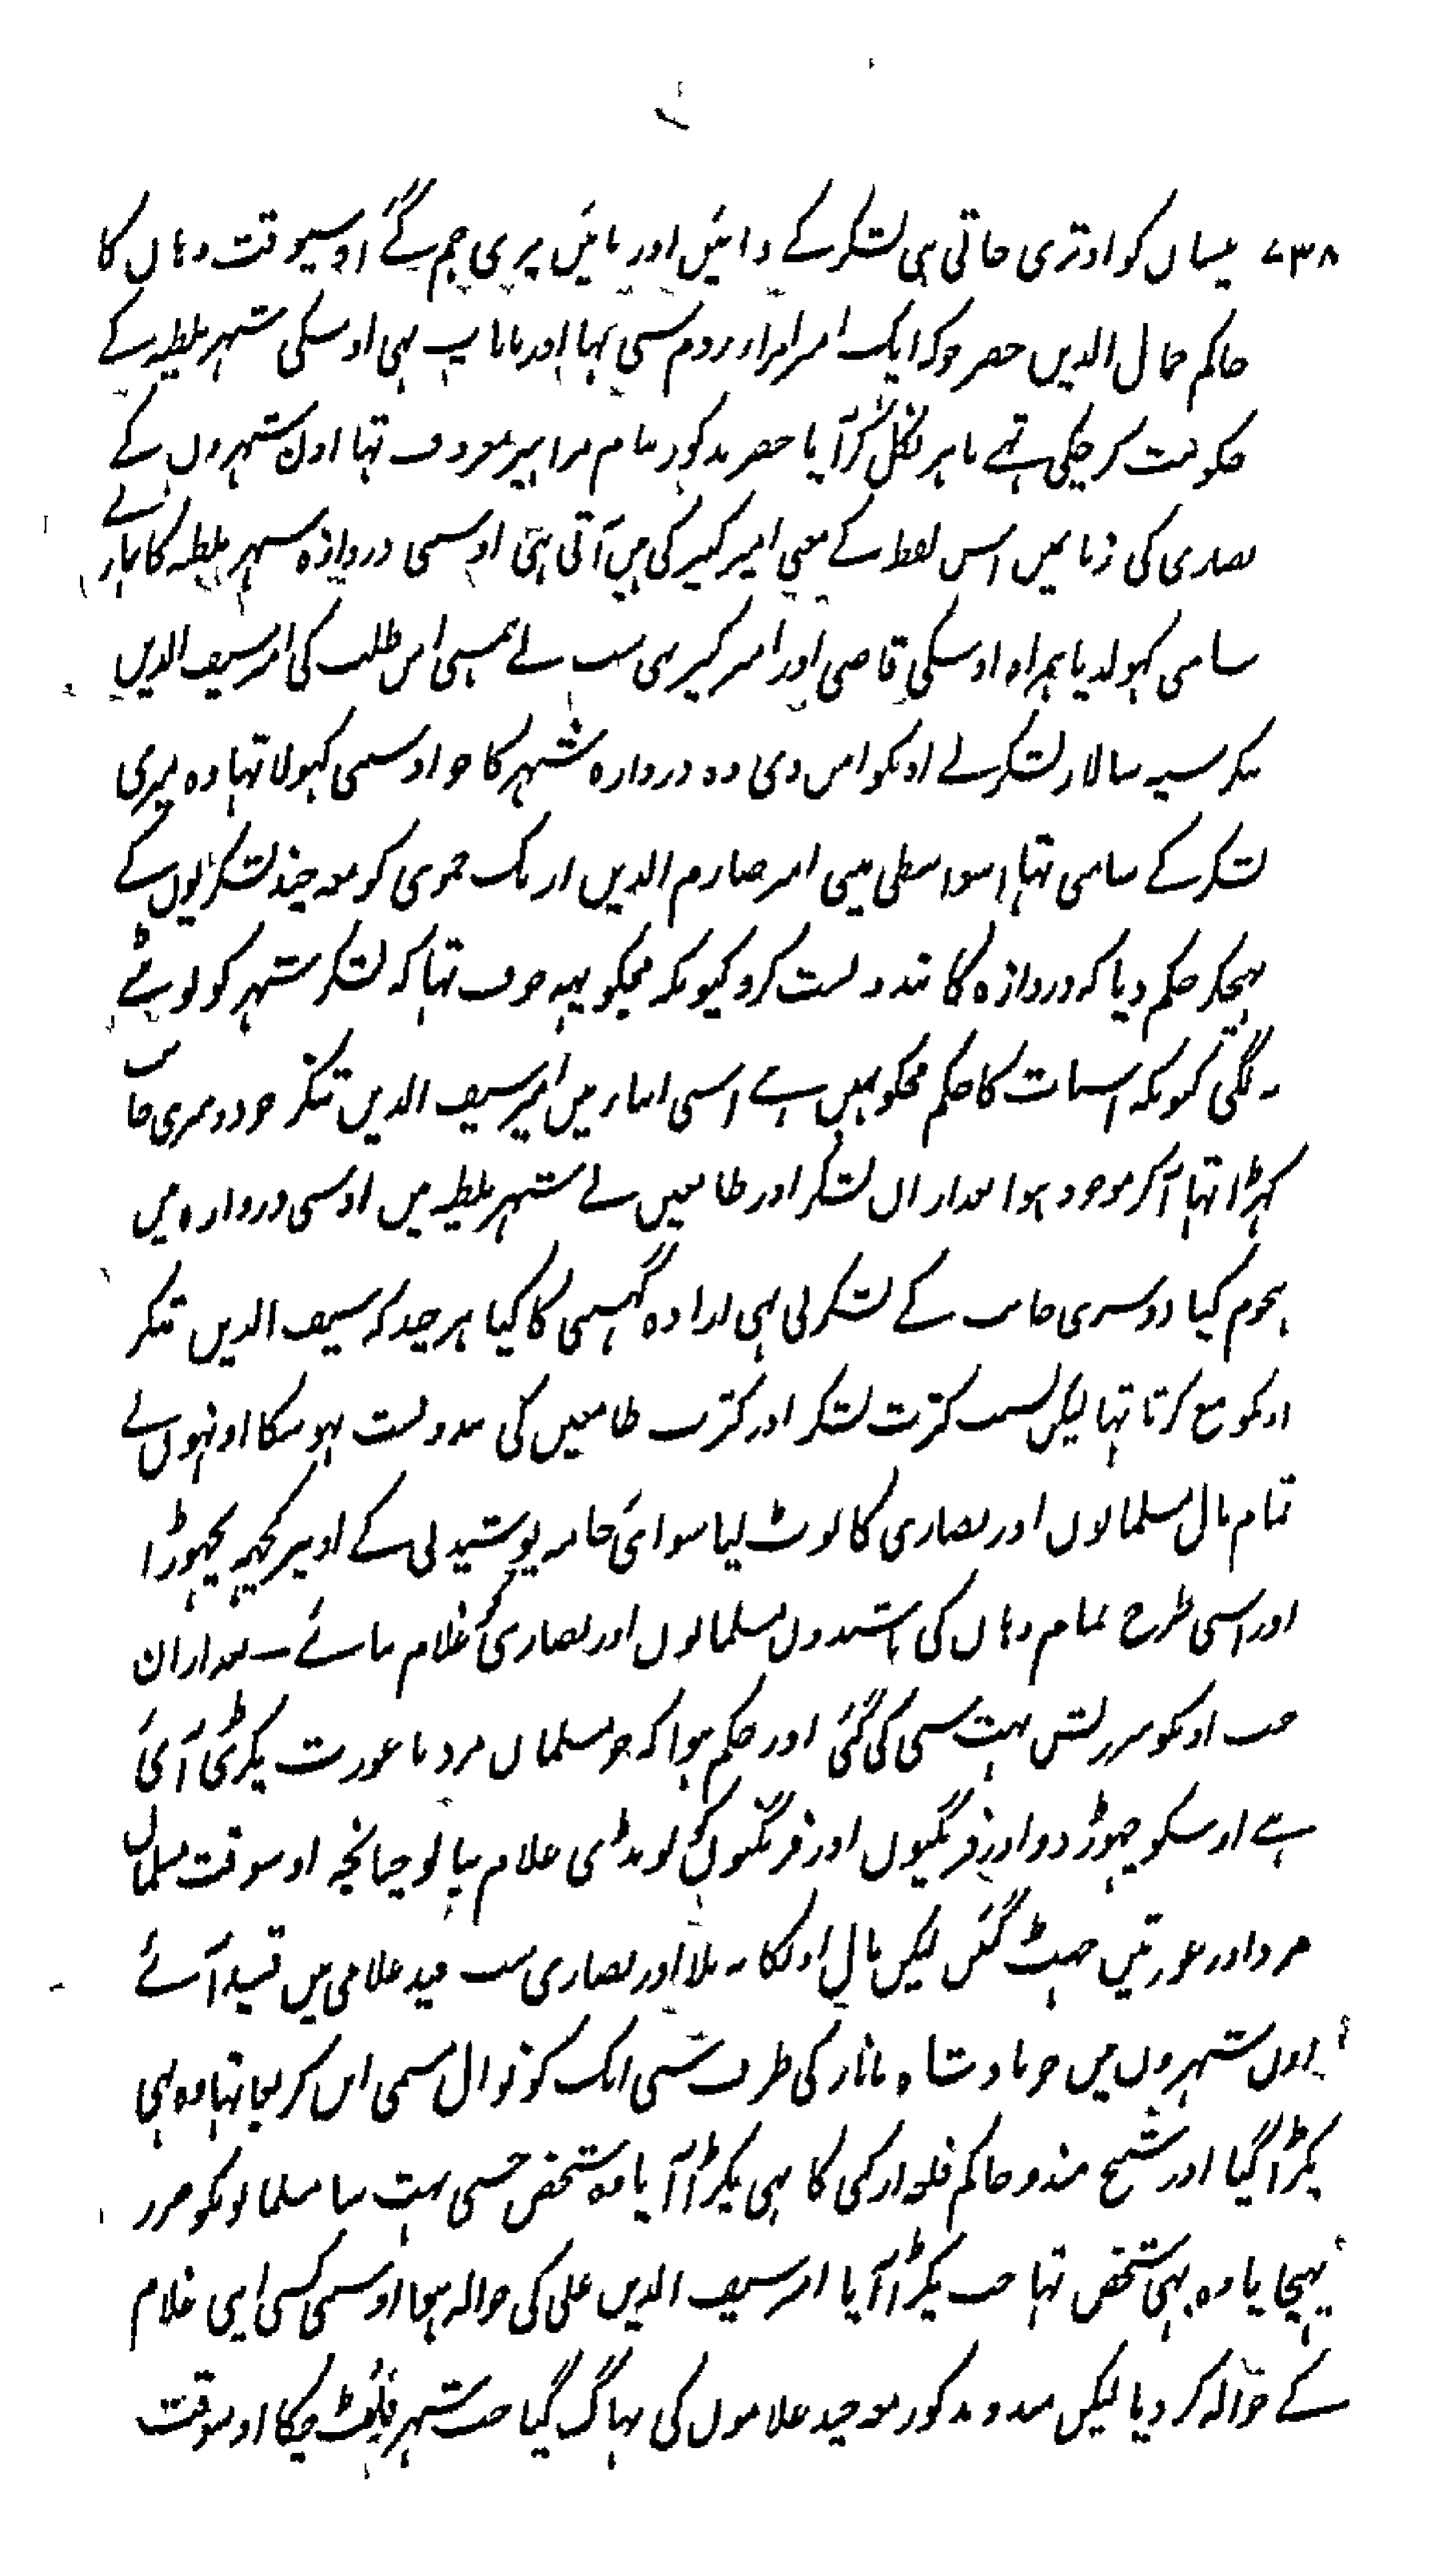 ۷۳۸ میساں کو اوتری جاتی ہی لشکر کے دائیں اور بائیں پری جم گئے اوسیوقت وہاں کا
حاکم جمال الدین خضر جو کہ ایک امر امراء روم سی تہا اور ماباپ ہی اوسکی شہر ملطیہ کے
حکومت کر چکی تہے باہر نکل کر آیا خضر مذکور بنام مرابیر معروف تہا اون شہروں کے
نصاری کی زبا نمیں اس لفظ کے معنی امیر کبیر کی ہیں آتی ہی اوسسی دروازہ شہر ملطیہ کا ہمارے
سامی کہولدیا ہمراہ اوسکی قاضی اور امر کبیر ہی سب نے ہمسی امن طلب کی امر سیف الدین
تنکر سپہ سالار لشکر نے اونکو امن دی وہ دروازہ شہر کا جو اوسسی کہولا تہا وہ میری
لشکر کے سامی تہا اسواسطی میسی امر صارم الدین ازبک حموی کو معہ چند لشکریوں کے
بہیجکر حکم دیا کہ دروازہ کا بند و بست کرو کیونکہ مجکو یہہ خوف تہا کہ لشکر شہر کو لوٹنے
نہ لگی کیونکہ اسبات کا حکم مجکو نہیں ہے اسی اثناء میں امیر سیف الدین تنکز جو دوسری جانب
کہڑا تہا آکر موجود ہوا بعد ازاں لشکر اور طامعین نے شہر ملطیہ میں اوسی دروازہ میں
ہجوم کیا دوسری جانب کے لشکر نی ہی ارادہ گہسی کا کیا ہر چند کہ سیف الدین تنکر
اونکو منع کرتا تہا لیکن بسبب کثرت لشکر اور کثرت طامعین کی بندوبست نہو سکا اونہوں نے
تمام مال مسلمانوں اور نصاری کا لوٹ لیا سوائی جامہ پوشیدنی کے اوپر کچہہ نچہوڑا
اور اسی طرح تمام وہاں کی باشندوں مسلمانوں اور نصاری کو غلام بنائے ــ بعد ازان
جب اونکو سرزنش بہت سی کی گئی اور حکم ہوا کہ جو مسلمان مرد یا عورت پکڑی آئی
ہے اوسکو چہوڑ دو اور فرنگیوں اور فرنگنوں کو لونڈی غلام بنا لو چنانچہ اوسوقت مسلمان
مرد اور عورتیں چہٹ گئی لیکن مال اونکا نہ ملا اور نصاری سب قید غلامی میں قید آئے
اون شہروں میں جو بادشاہ تاتار کی طرف سی ایک کوتوال مسمی اس کر بجا تہا وہ ہی
پکڑا گیا اور شیخ مندو حاکم قلعہ ارکی کا بہی پکڑا آیا وہ شخص جسی بہت سا مسلمانونکو ضرر
پہنچایا وہ یہی شخص تہا جب پکڑا آیا امر سیف الدین علی کی حوالہ ہوا اوسسی کسی اپنی غلام
کے حوالہ کر دیا لیکن مندو مذکور معہ چند غلاموں کی بہاگ گیا جب شہر لٹ چکا اوسوقت